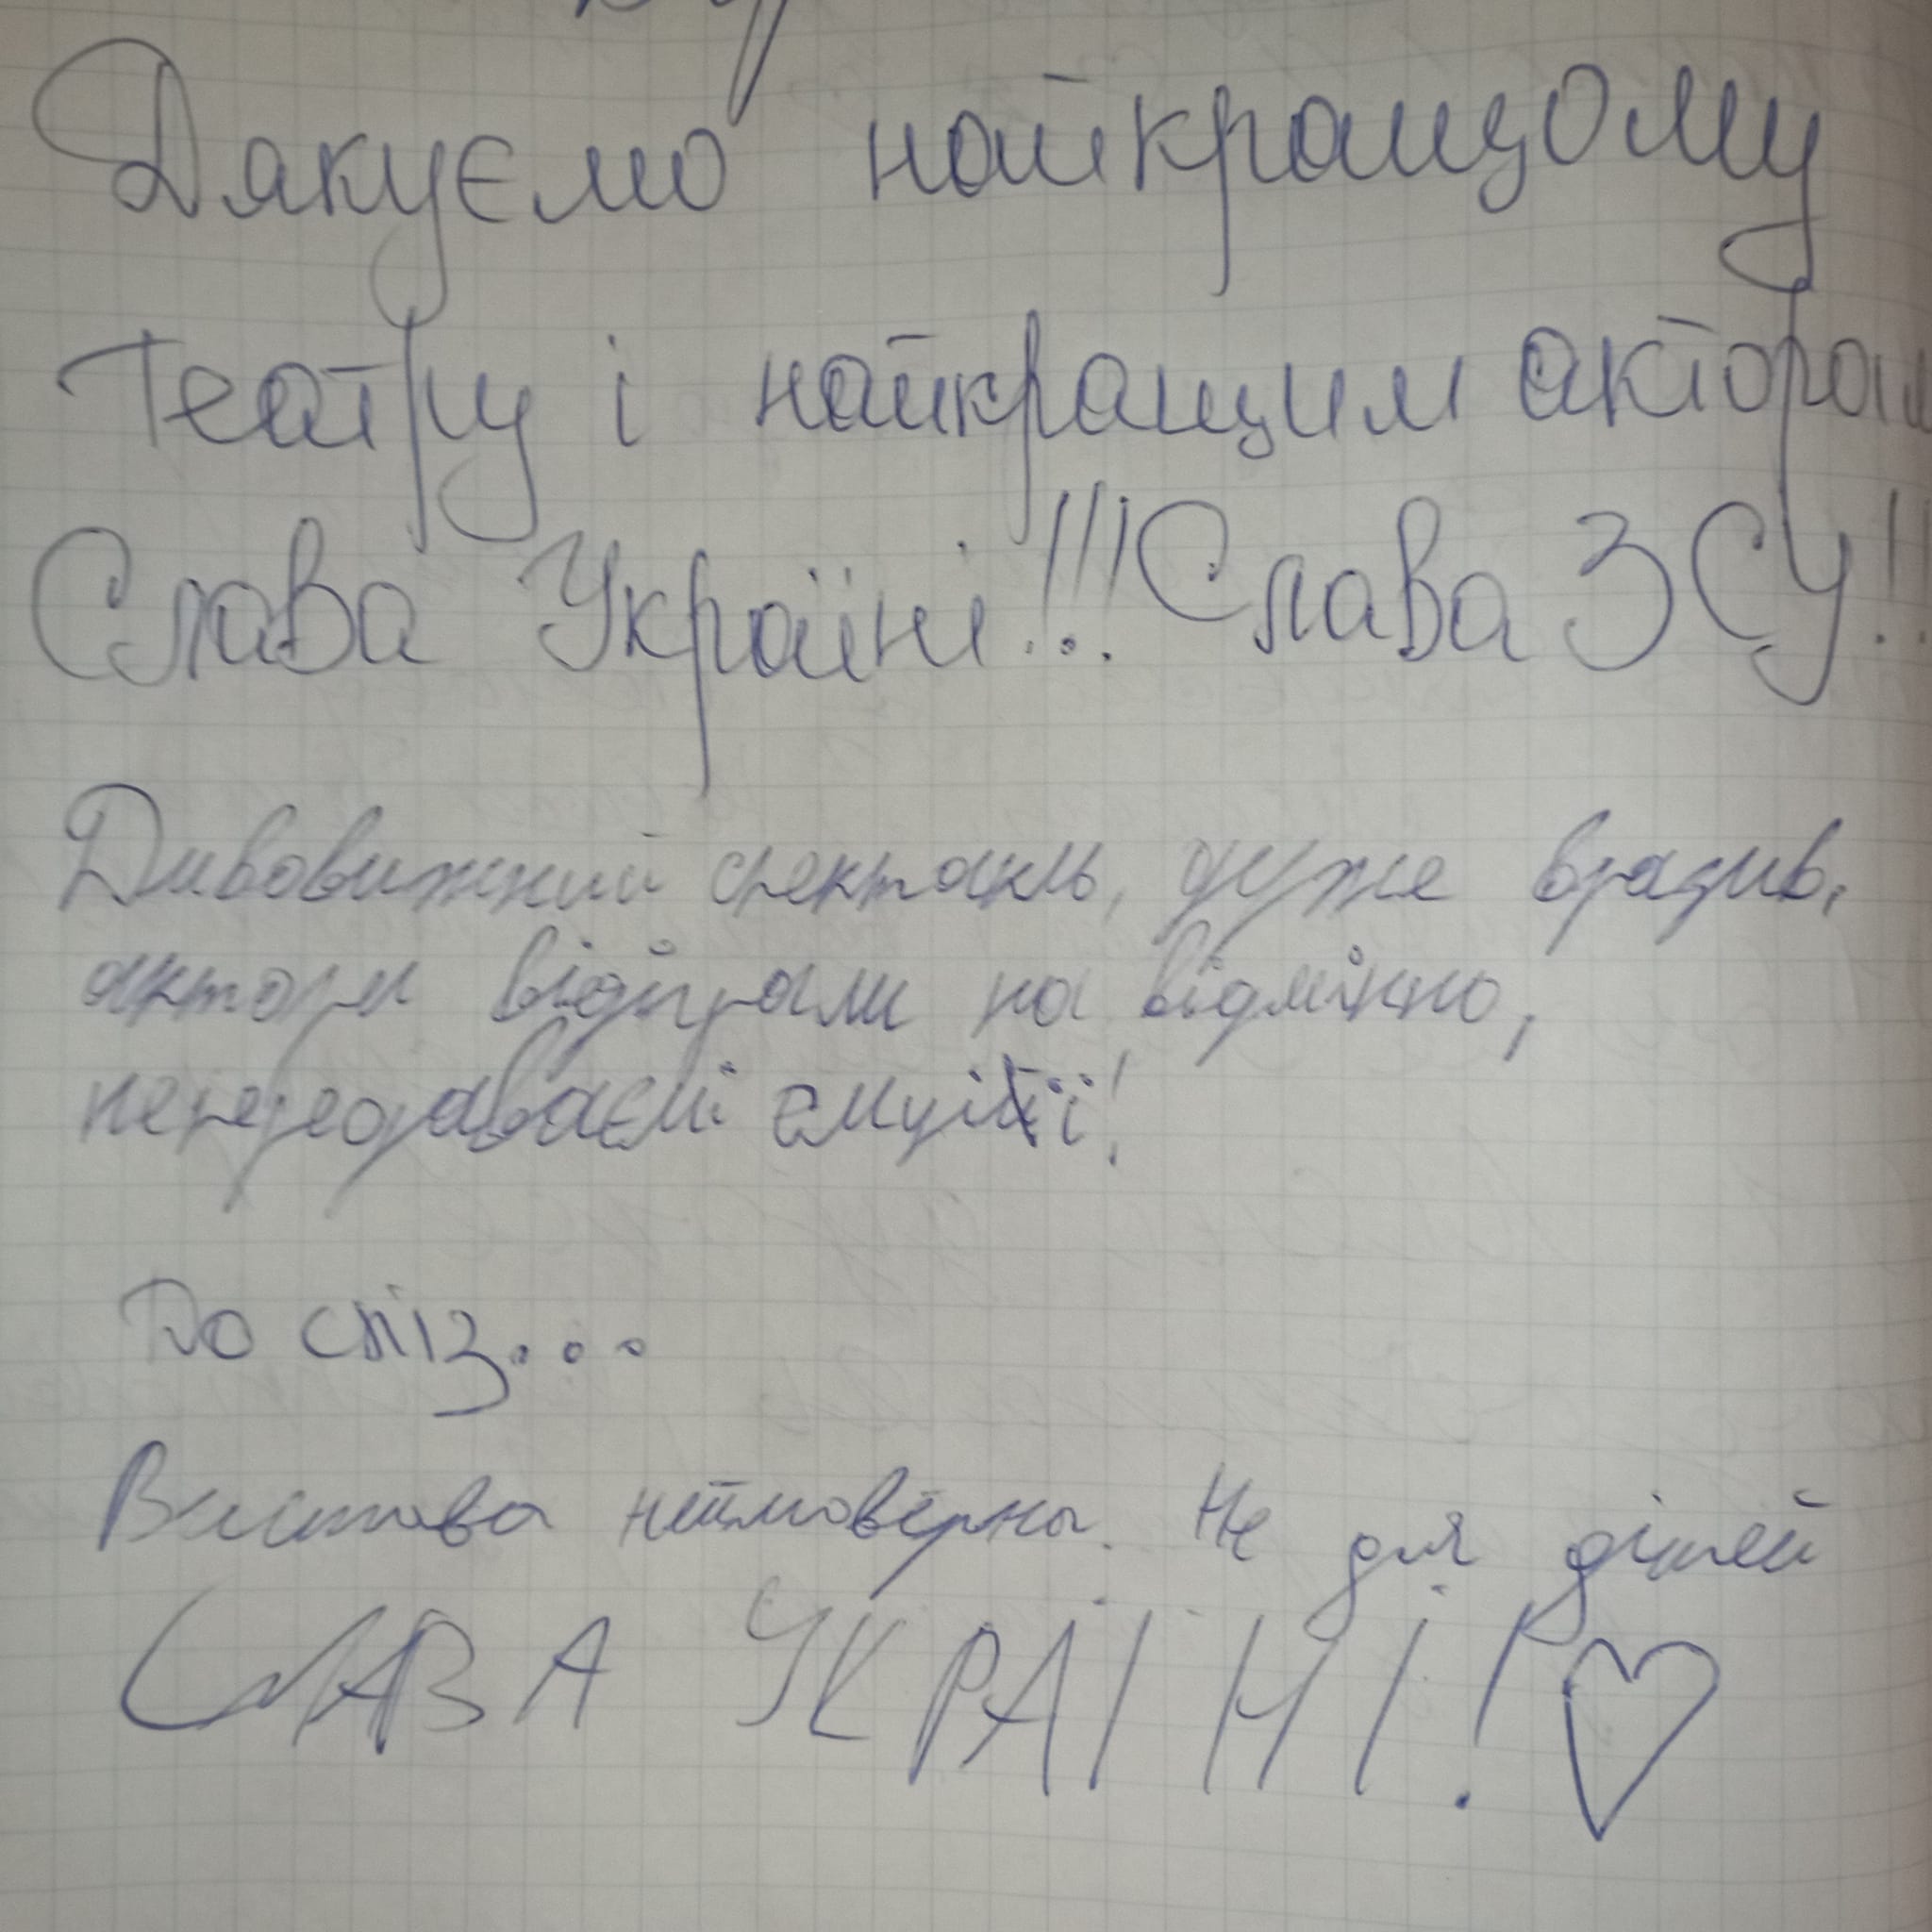 Дякуємо найкращому
театру і найкращим акторам
Слава Україні!!! Слава ЗСУ!!
Дивовижний спектакль, дуже вразив,
актори відіграли на відмінно,
непередаваємі емуції!
До сліз...
Вистава неймовірна. Не для дітей
СЛАВА УКРАЇНІ!